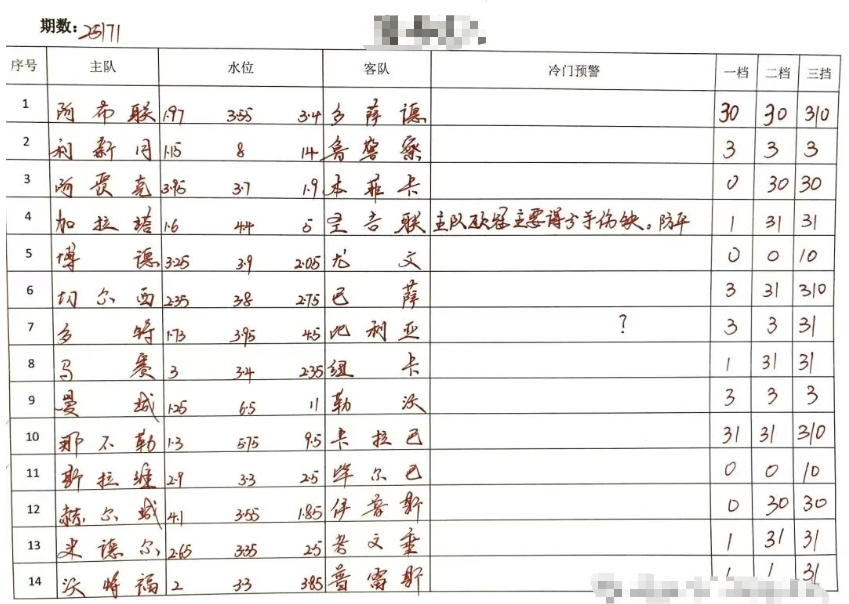 期数: 25171
序号 主队 水位 客队 冷门预警 一档 二档 三挡
1 阿布联 1.97 3.55 3.4 多萨德 30 30 310
2 利新月 1.15 8 14 鲁警察 3 3 3
3 阿贾克 3.95 3.7 1.9 本菲卡 0 30 30
4 加拉塔 1.6 4.4 5 圣吉联 主队欧冠主要得分手伤缺。防平 1 31 31
5 博德 3.25 3.9 2.05 尤文 0 0 10
6 切尔西 2.35 3.8 2.75 巴萨 3 31 310
7 多特 1.73 3.95 4.5 比利亚 ? 3 3 31
8 马赛 3 3.4 2.35 纽卡 1 31 31
9 曼城 1.25 6.5 11 勒沃 3 3 3
10 那不勒 1.3 5.75 9.5 卡拉巴 31 31 310
11 斯拉维 2.9 3.3 2.5 毕尔巴 0 0 10
12 赫尔城 4.1 3.55 1.85 伊普斯 0 30 30
13 米德尔 2.65 3.35 2.5 考文垂 1 31 31
14 沃特福 2 3.3 3.85 普雷斯 1 1 31